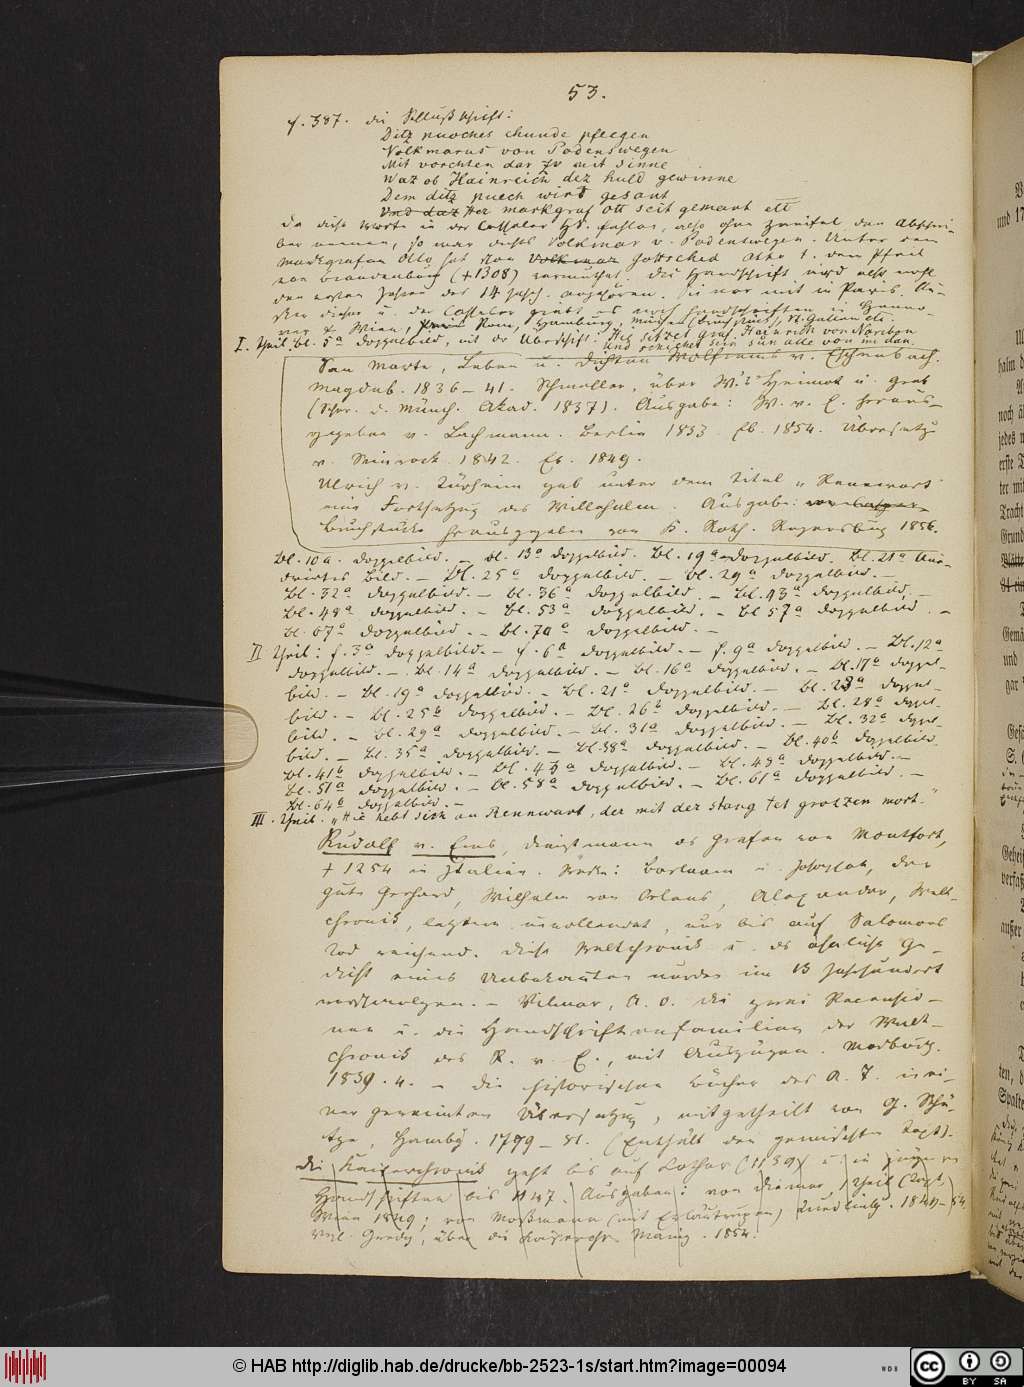 53.
f. 387. die Schlußschrift:
Ditz puoches chunde pflegen
Volkmarus von Podenswegen
Mit vorchten dar zv mit sinne
Waz ob Hainreich dez huld gewinne
Dem ditz puech wirt gesant
Vnd daz Her markgraf Ott seit gemant etc
da diese Worte in der Casseler Hs. fehlen, also ohne Zweifel den Abschrei-
ber nennen, so war dieses Volkmar v. Podenswegen. Unter dem
Markgrafen Otto hat schon Volkmar Gottsched Otto t. dem Pfeil
von Brandenburg († 1308) vermuthet. Die Handschrift wird also wohl
den ersten Jahren des 14 Jahrh. angehören. Sie war mit in Paris. Au-
ßer dieser u. der Casseler giebt es noch Handschriften in Hanno-
ver, Wien, Rom, Hamburg, München (Bruchstück), St. Gallen etc.
I. Theil. bl. 5a Doppelbild, mit der Überschrift: Hie sitzet Graf Hainrich von Naribon
Und schichet sein sun alle von im dan.
San Marte, Leben u. Dichten Wolframs v. Eschenbach.
Magdeb. 1836–41. Schmeller, über W.'s Heimat u. Grab
(Schr. d. Münch. Akad. 1837). Ausgabe: W. v. E. heraus-
gegeben v. Lachmann. Berlin 1833. Eb. 1854. Übersetzg
v. Simrock. 1842. Eb. 1849.
Ulrich v. Türheim gab unter dem Titel „Rennewart"
eine Fortsetzg des Willehalm. Ausgabe:
Bruchstücke herausgegeben von K. Roth. Regensburg 1856.
Bl. 10a. Doppelbild. – Bl. 13a Doppelbild. Bl. 19a Doppelbild. Bl. 21a
Bild. – Bl. 25a Doppelbild. – Bl. 29a Doppelbild. –
Bl. 32a Doppelbild. – Bl. 36a Doppelbild. – Bl. 43a Doppelbild. –
Bl. 48a Doppelbild. – Bl. 53a Doppelbild. – Bl. 57a Doppelbild. –
Bl. 67a Doppelbild. – Bl. 70a Doppelbild. –
II Theil: f. 3a Doppelbild. – f. 6a Doppelbild. – f. 9a Doppelbild. – Bl. 12a
Doppelbild. – Bl. 14a Doppelbild. – Bl. 16a Doppelbild. – Bl. 17a Doppel-
bild. – Bl. 19a Doppelbild. – Bl. 21a Doppelbild. – Bl. 23a Doppel-
bild. – Bl. 25b Doppelbild. – Bl. 26b Doppelbild. – Bl. 28a Doppel-
bild. – Bl. 29a Doppelbild. – Bl. 31a Doppelbild. – Bl. 32a Doppel-
bild. – Bl. 35a Doppelbild. – Bl. 38a Doppelbild. – Bl. 40b Doppelbild
Bl. 41b Doppelbild. – Bl. 43a Doppelbild. – Bl. 49a Doppelbild. –
Bl. 51a Doppelbild. – Bl. 58a Doppelbild. – Bl. 61a Doppelbild. –
Bl. 64b Doppelbild. –
III. Theil. „Hie hebt sich an Rennwart, der mit der stang tet grozzen mort."
Rudolf v. Ems, Dienstmann der Grafen von Montfort,
† 1254 in Italien. Werke: Barlaam u. Josaphat, der
gute Gerhard, Wilhelm von Orlens, Alexander, Welt-
chronik, letztere unvollendet, nur bis auf Salomons
Tod reichend. Diese Weltchronik u. das ähnliche Ge-
dicht eines Unbekannten wurden im 13 Jahrhundert
verschmolzen. – Vilmar, A. O. die zwei Recensio-
nen u. die Handschriftenfamilien der Welt-
chronik des R. v. E., mit Auszügen. Marburg.
1839. 4. – die historischen Bücher des A. T. in ei-
ner gereimten Übersetzg, mitgetheilt von G. Schü-
tze, Hambg. 1779–81. (Enthält den gemischten Text).
Die Kaiserchronik geht bis auf Lothar (1139) u. in jüngeren
Handschriften bis 1147. Ausgaben: von Diemer, 1 Theil (Text)
Wien 1849; von Maßmann (mit Erläuterungen) Quedlinbg. 1849–54
Vgl. Gredy, über die Kaiserchr. Mainz. 1854.
© HAB http://diglib.hab.de/drucke/bb-2523-1s/start.htm?image=00094
WDB
cc BY SA